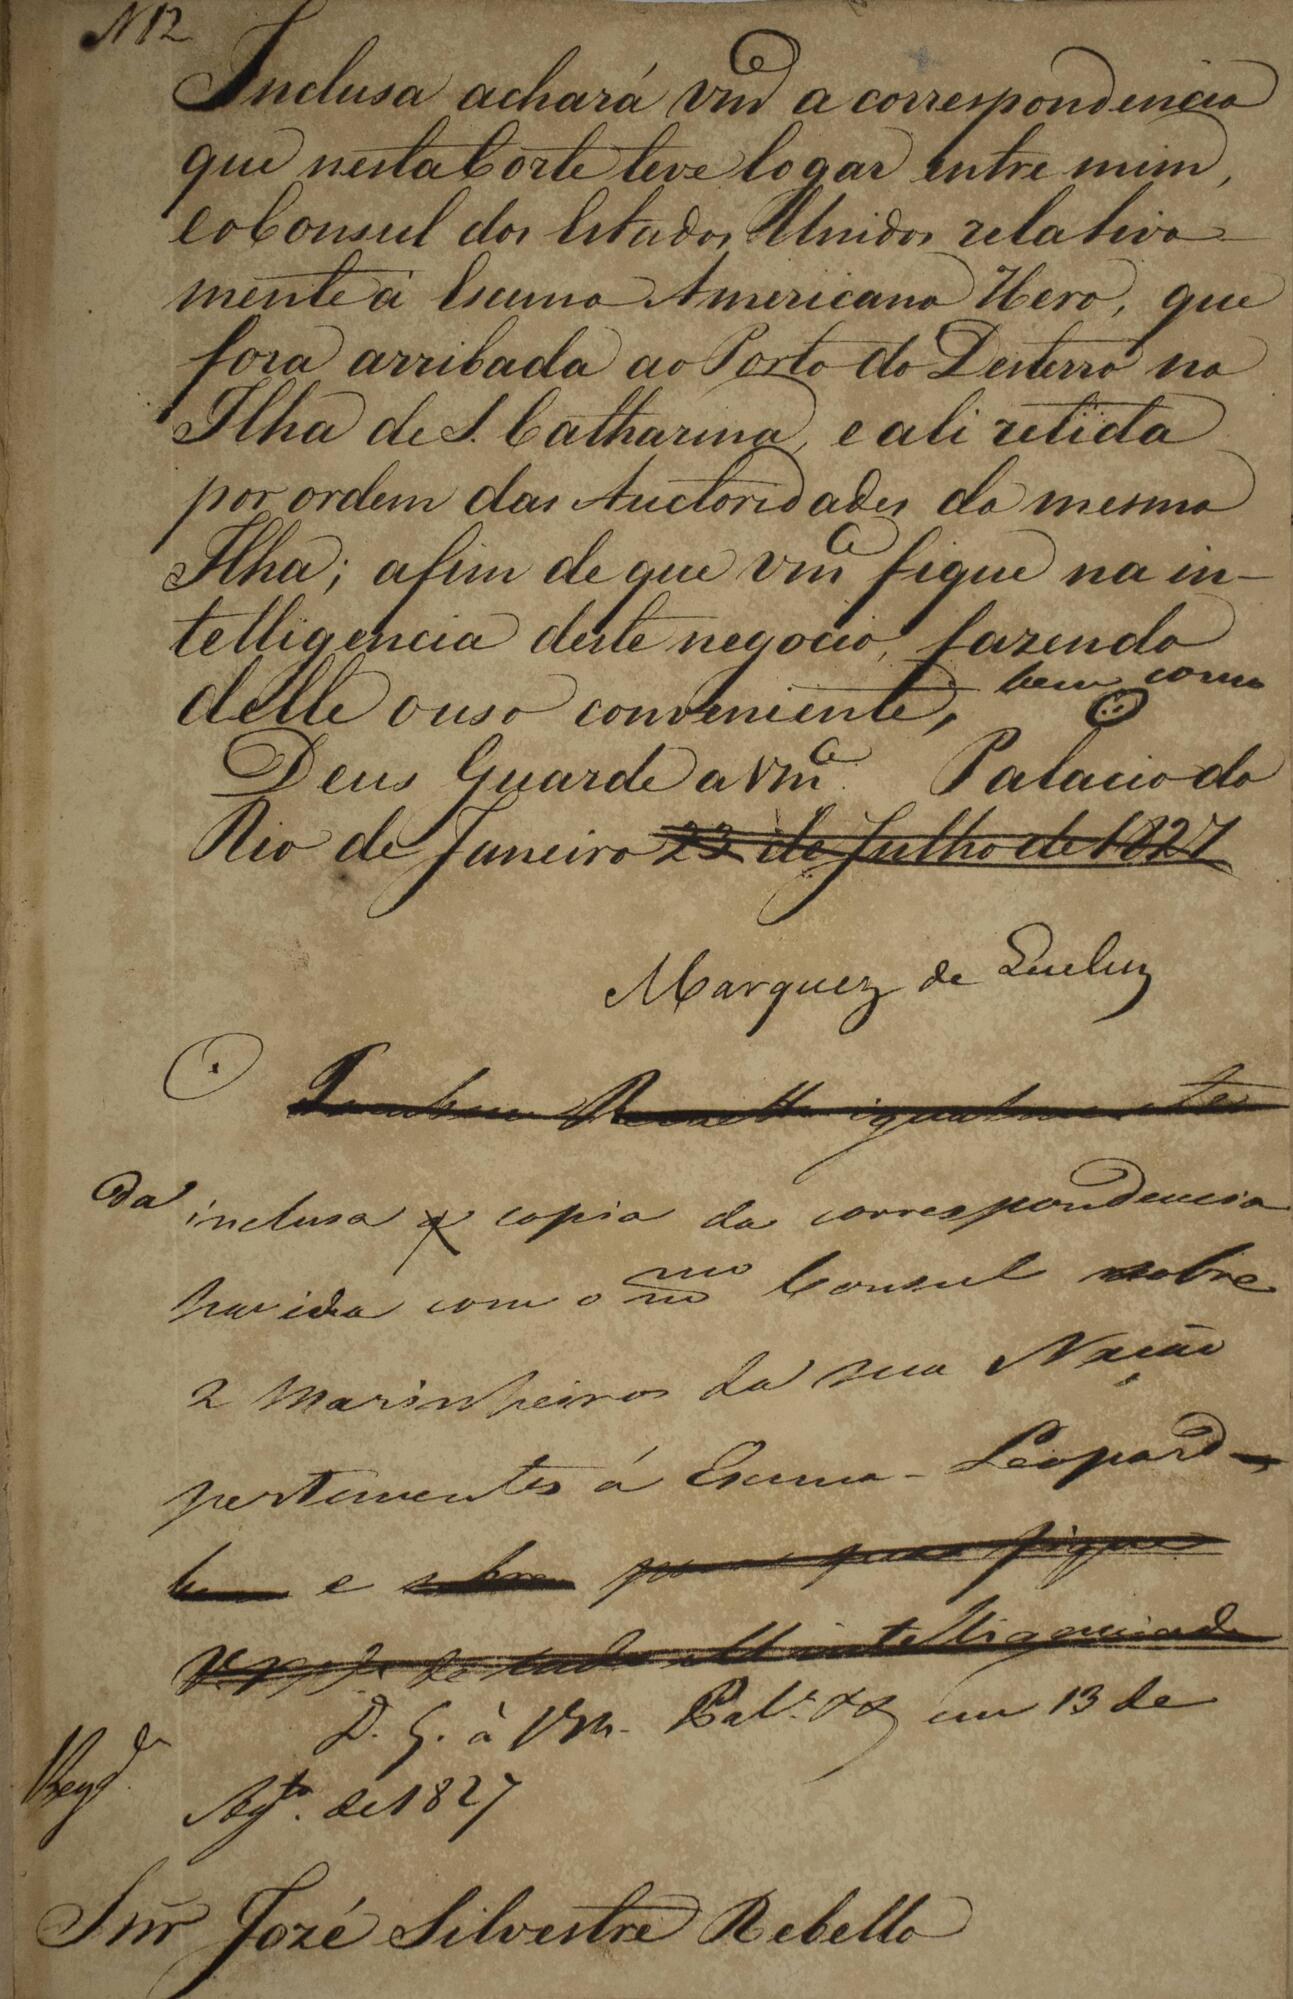 N 12
Inclusa achará Vmce a correspondencia
que nesta Corte teve logar entre mim,
e o Consul dos Estados Unidos relativa-
mente á Escuna Americana Hero, que
fora arribada ao Porto do Desterro na
Ilha de S. Catharina, e ali retida
por ordem das Auctoridades da mesma
Ilha; afim de que Vmce fique na in-
telligencia deste negocio, fazendo
delle o uso conveniente, bem como
Deus Guarde a Vmce. Palacio do
Rio de Janeiro 23 de Julho de 1827
Marquez de Queluz
Tambem Remetto igualmente
da inclusa a copia da correspondencia
havida com o mmo Consul sobre
2 Marinheiros da sua Nação
pertencentes á Escuna - Leopard -
e sobre fique
de tudo intelligenciado
D. G. á Vm. Pal.º em 13 de
Agto. de 1827
Regda.
Snr José Silvestre Rebello